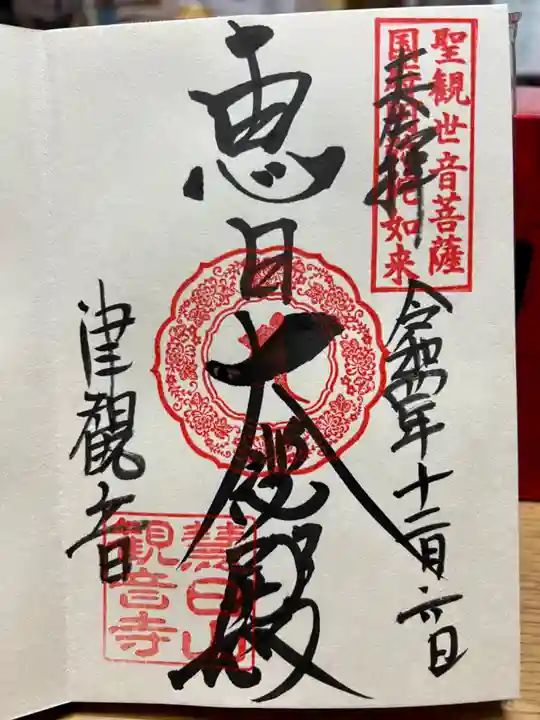 聖観世音菩薩
国府阿弥陀如来
奉拝
令和四年十二月二日
恵日大慈殿
津観音
慧日山
観音寺